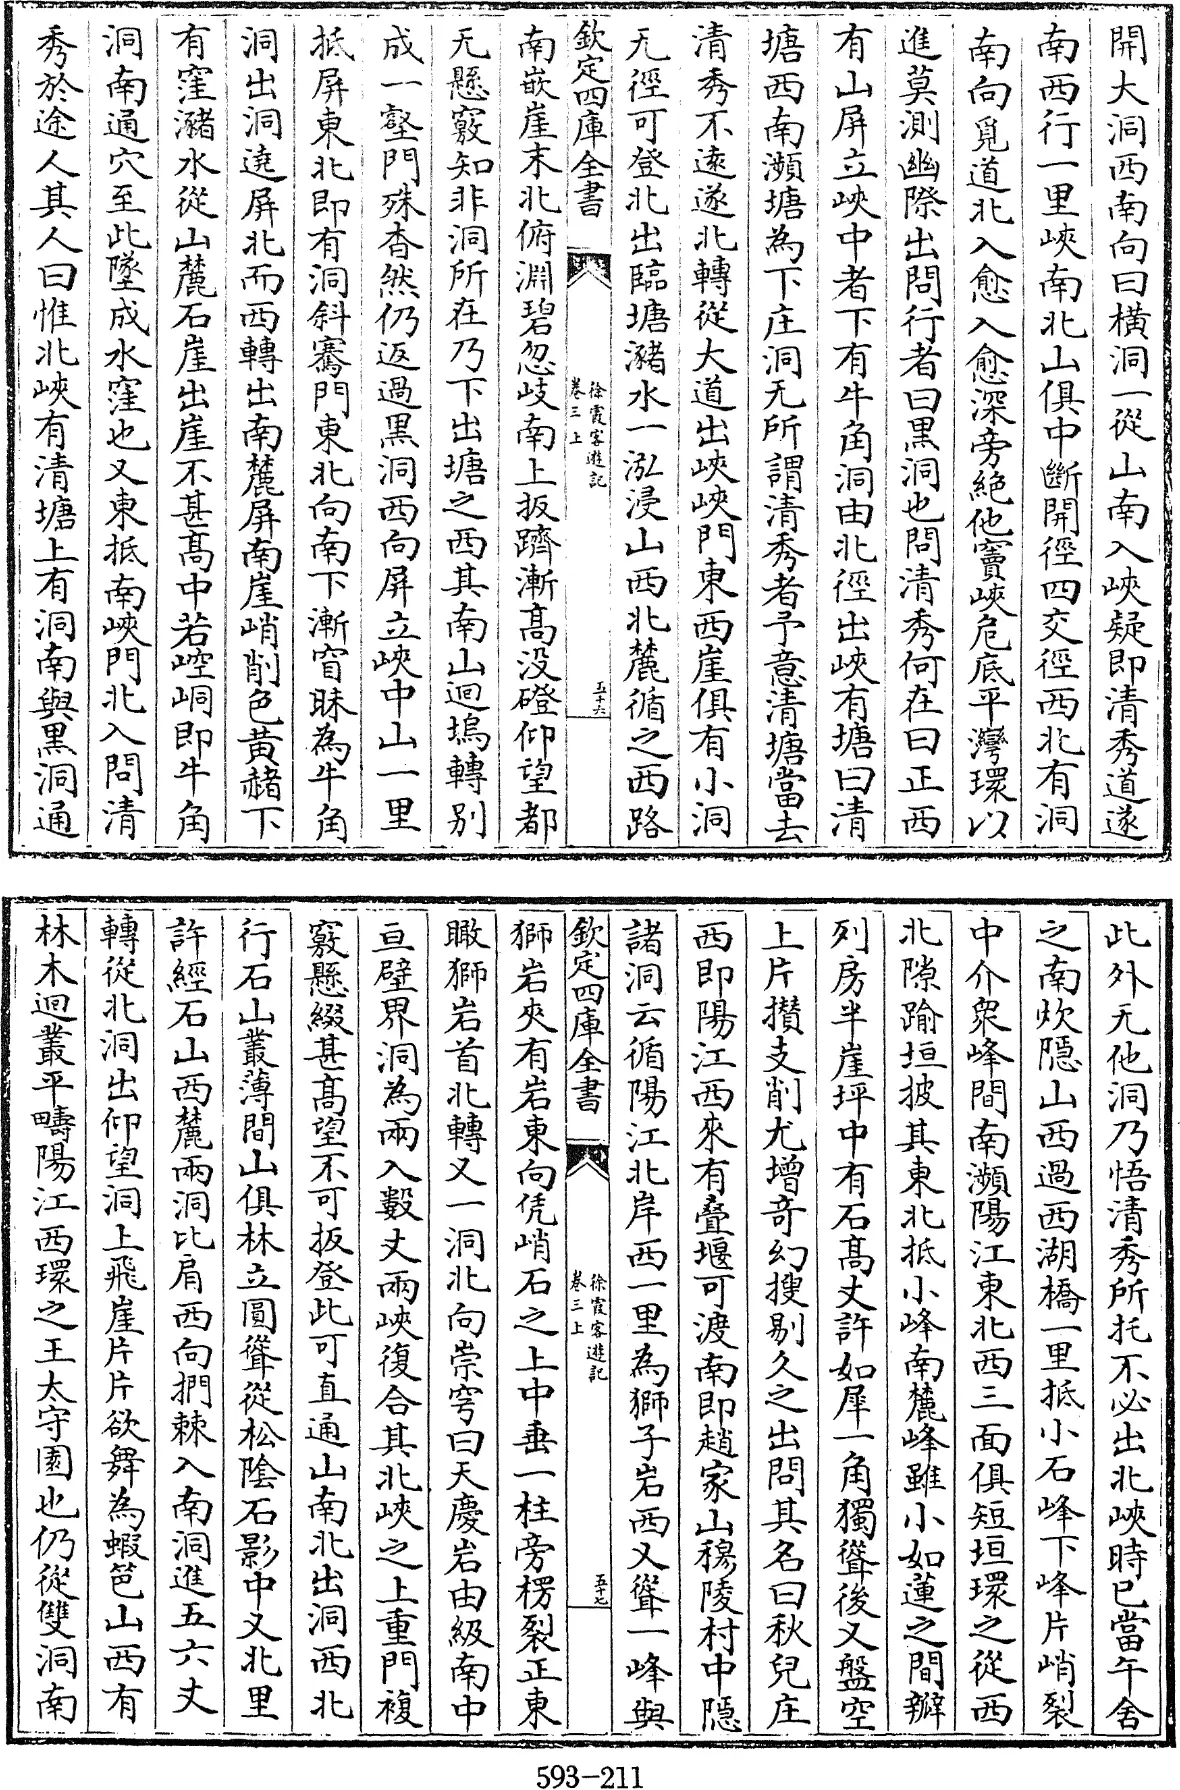 開大洞西南向曰橫洞一從山南入峽疑即清秀道遂
南西行一里峽南北山俱中斷開徑四交徑西北有洞
南向覓道北入愈入愈深旁絶他竇峽危底平灣環以
進莫測幽際出問行者曰黑洞也問清秀何在曰正西
有山屏立峽中者下有牛角洞由北徑出峽有塘曰清
塘西南瀕塘為下庄洞无所謂清秀者予意清塘當去
清秀不遠遂北轉從大道出峽峽門東西崖俱有小洞
无徑可登北出臨塘瀦水一泓浸山西北麓循之西路
欽定四庫全書
徐霞客遊記
卷三上
五十六
南嵌崖末北俯淵碧忽岐南上扳躋漸高没磴仰望都
无懸竅知非洞所在乃下出塘之西其南山迴塢轉别
成一壑門殊杳然仍返過黑洞西向屏立峽中山一里
抵屏東北即有洞斜騫門東北向南下漸窅昧為牛角
洞出洞遶屏北而西轉出南麓屏南崖峭削色黄赭下
有窪瀦水從山麓石崖出崖不甚高中若崆峒即牛角
洞南通穴至此墜成水窪也又東抵南峽門北入問清
秀於途人其人曰惟北峽有清塘上有洞南與黑洞通
此外无他洞乃悟清秀所托不必出北峽時已當午舍
之南炊隱山西過西湖橋一里抵小石峰下峰片峭裂
中介衆峰間南瀕陽江東北西三面俱短垣環之從西
北隙踰垣披其東北抵小峰南麓峰雖小如蓮之間辦
列房半崖坪中有石高丈許如犀一角獨聳後又盤空
上片攅支削尤增奇幻搜剔久之出問其名曰秋兒庄
西即陽江西來有疊堰可渡南即趙家山穆陵村中隱
諸洞云循陽江北岸西一里為獅子岩西又聳一峰與
欽定四庫全書
徐霞客遊記
卷三上
五十七
獅岩夾有岩東向凭峭石之上中垂一柱旁楞裂正東
瞰獅岩首北轉又一洞北向崇穹曰天慶岩由級南中
亘壁界洞為兩入數丈兩峽復合其北峽之上重門複
竅懸綴甚高望不可扳登此可直通山南北出洞西北
行石山叢薄間山俱林立圓聳從松陰石影中又北里
許經石山西麓兩洞比肩西向捫棘入南洞進五六丈
轉從北洞出仰望洞上飛崖片片欲舞為蝦笆山西有
林木迴叢平疇陽江西環之王太守園也仍從雙洞南
593-211